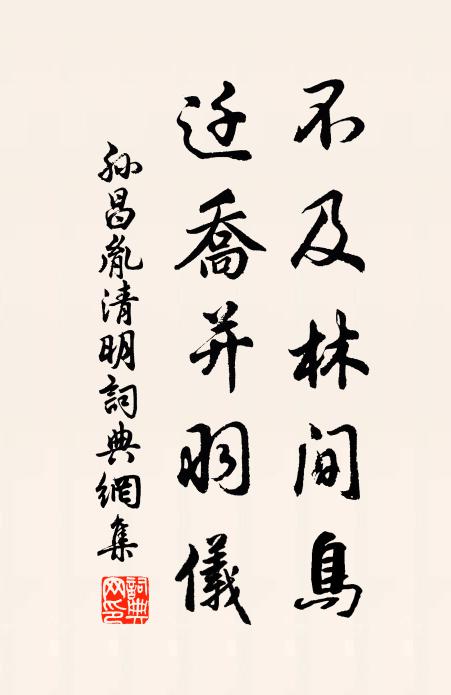 不及林间鳥
迁喬并羽儀
孫昌胤清明詞典網集
詞典網印